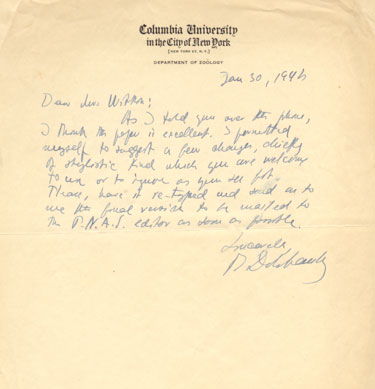 Columbia University
in the City of New York
[NEW YORK 27, N. Y.]
DEPARTMENT OF ZOOLOGY
Jan 30, 1946
Dear Miss Witkin:
As I told you over the phone,
I think the paper is excellent. I permitted
myself to suggest a few changes, chiefly
of stylistic kind which you are welcome
to use or to ignore as you see fit.
Please, have it re-typed and send us to
me the final version to be mailed to
the P.N.A.S. editor as soon as possible.
Sincerely